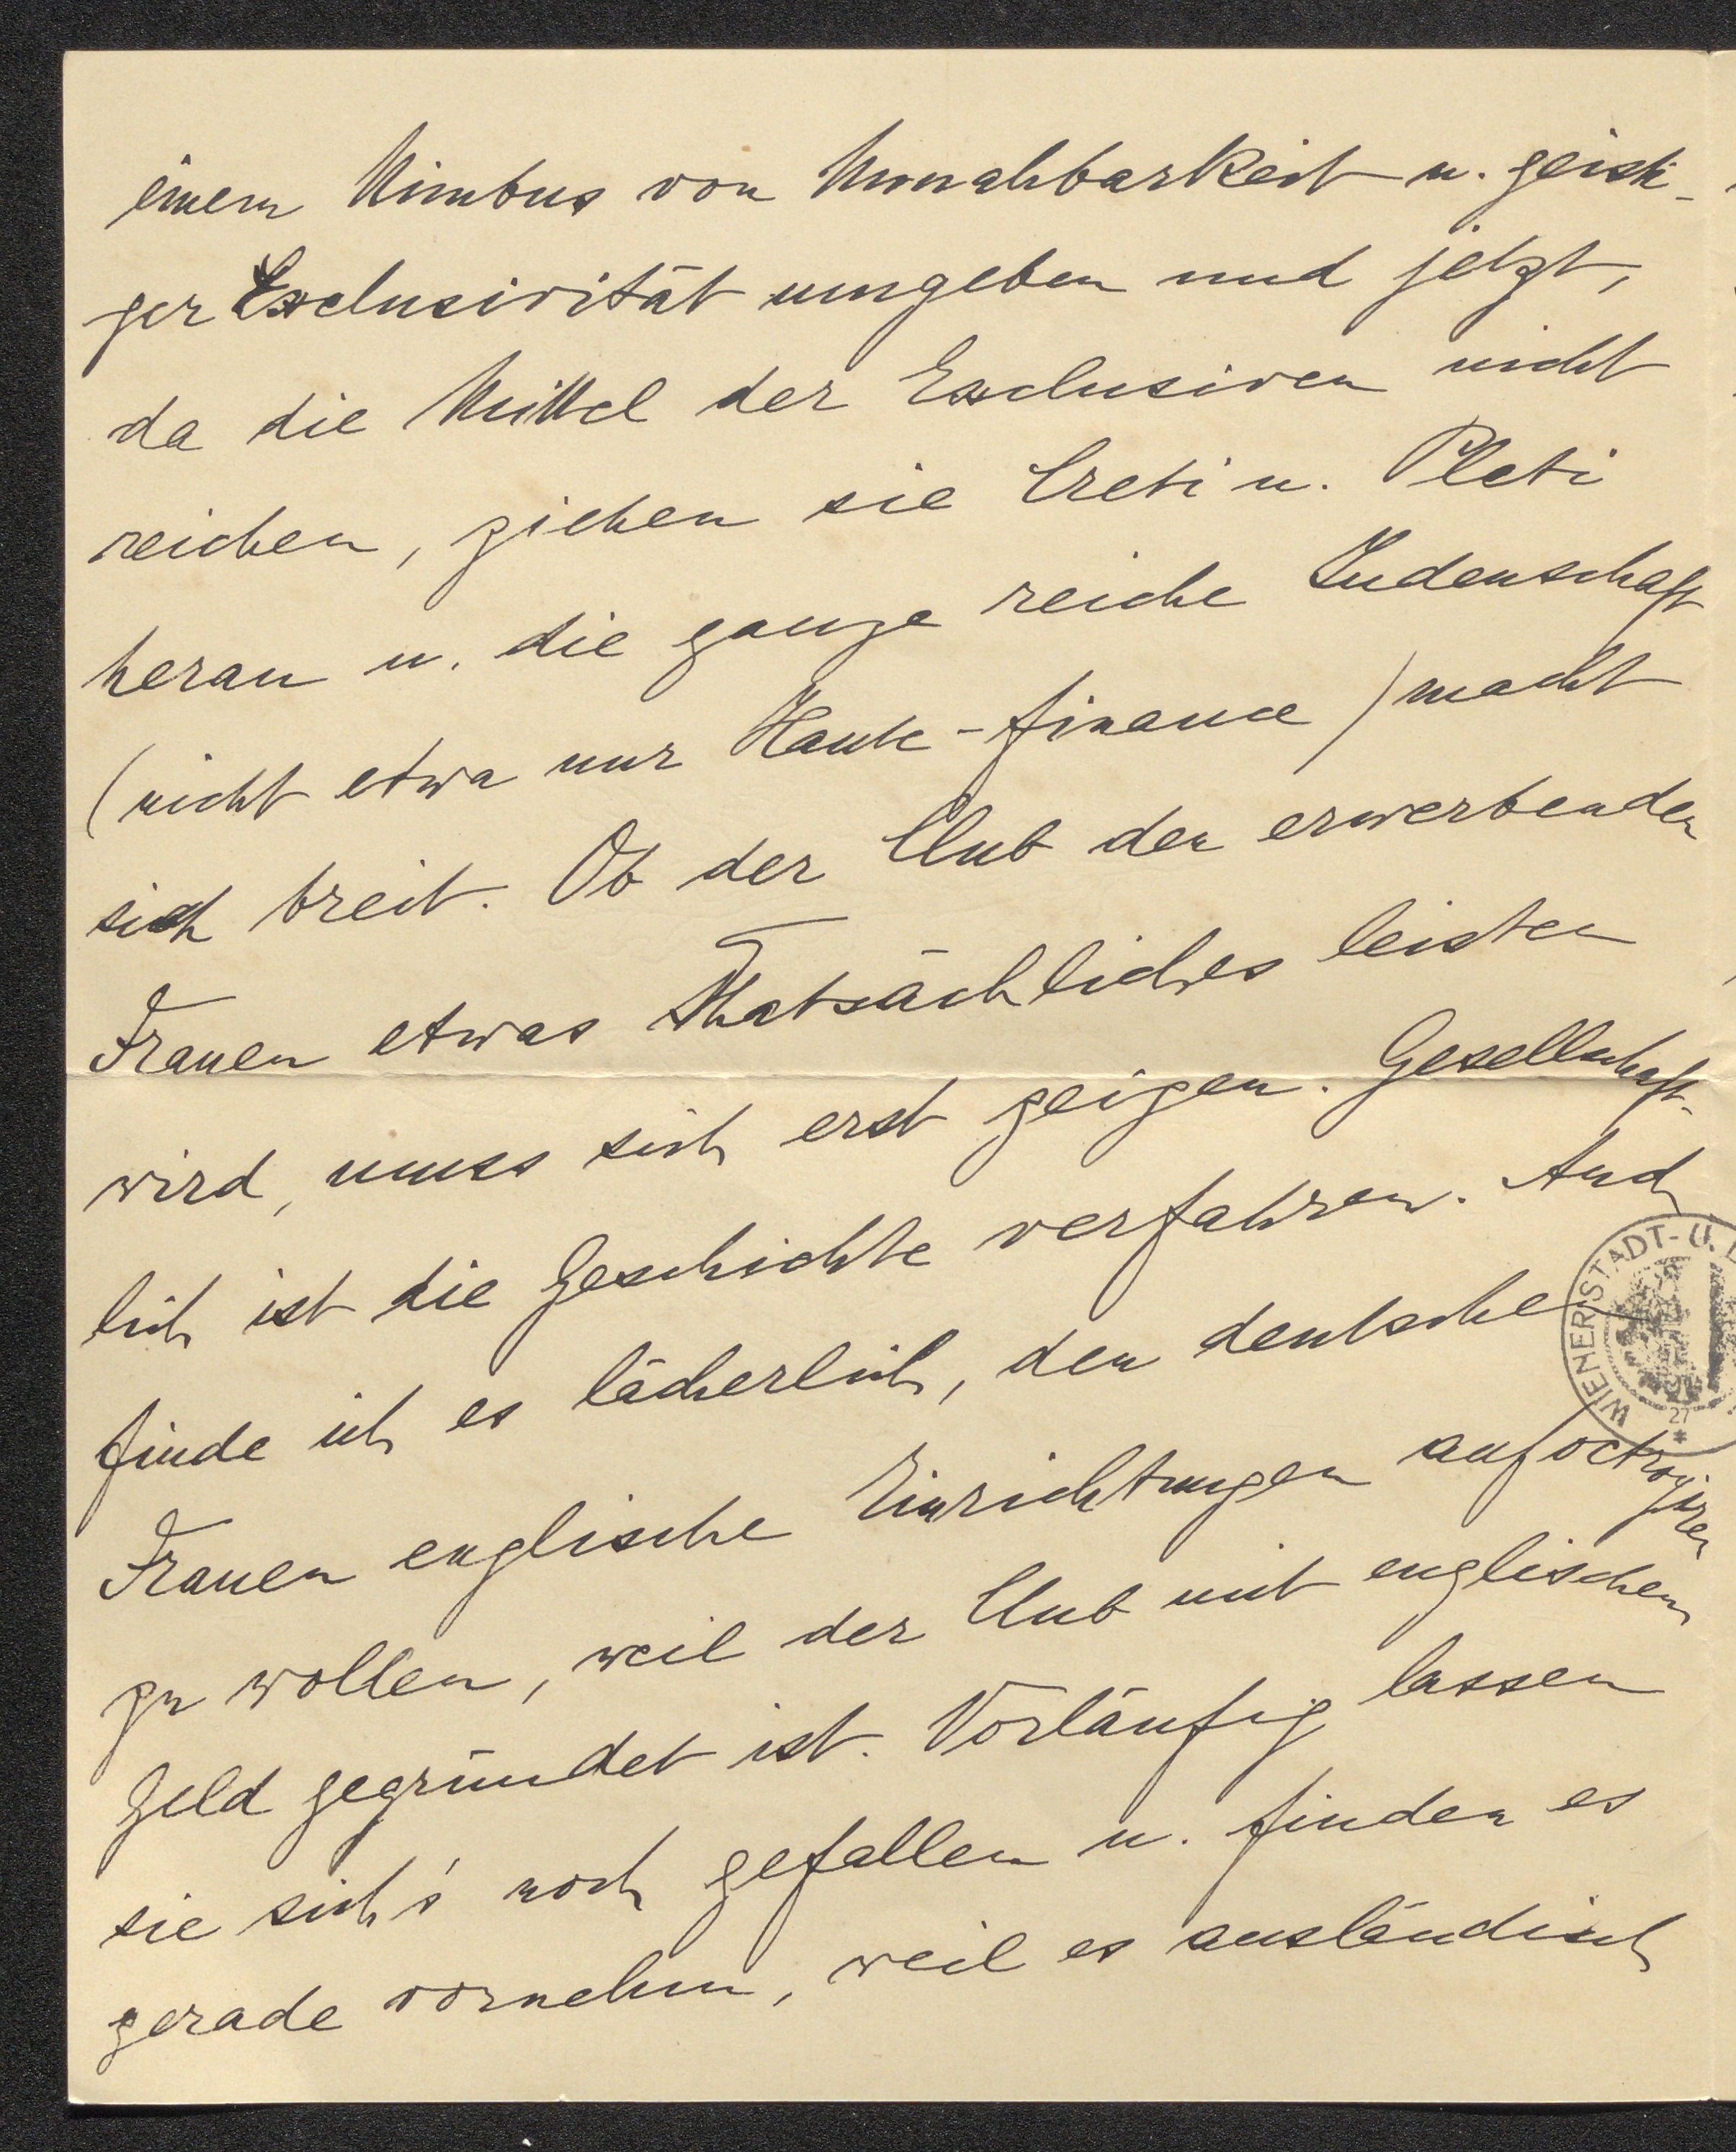 einem Nimbus von Unnahbarkeit u. geisti-
ger Exclusivität umgeben und jetzt,
da die Mittel der Exclusiven nicht
reichen, ziehen sie Creti u. Pleti
heran u. die ganze reiche Judenschaft
(nicht etwa nur Haute-finance) macht
sich breit. Ob der Club den erwerbenden
Frauen etwas Thatsächliches leisten
wird, muss sich erst zeigen. Gesellschaft-
lich ist die Geschichte verfahren. Auch
finde ich es lächerlich, den deutschen
Frauen englische Einrichtungen aufoctroyiren
zu wollen, weil der Club mit englischem
Geld gegründet ist. Vorläufig lassen
sie sich's noch gefallen u. finden es
gerade vornehm, weil es ausländisch
WIENER STADT- U.
27